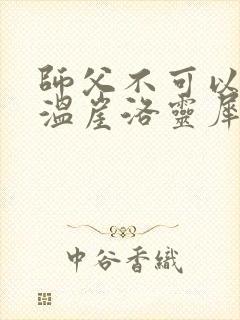 師父不可以
溫崖洛靈犀
中谷香織